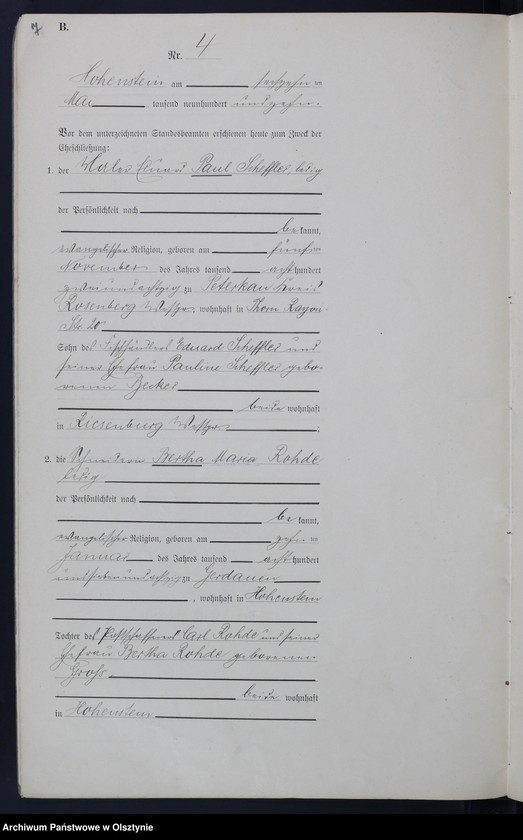 B.
Nr. 4
Hohenstein am sechzehn ten
Mai tausend neunhundert und zehn.
Vor dem unterzeichneten Standesbeamten erschienen heute zum Zweck der
Eheschließung:
1. der Paul Scheffler, ledig
der Persönlichkeit nach
be kannt,
evangelischer Religion, geboren am fünften
November des Jahres tausend acht hundert
zweiundachtzig zu Peterkau Kreis
Rosenberg Westpr., wohnhaft in Thorn Rayon-
Str. 20
Sohn des Fischhändlers Eduard Scheffler und
seiner Ehefrau Pauline Scheffler gebo-
renen Becker
beide wohnhaft
in Riesenburg Westpr.
2. die Schneiderin Bertha Maria Rohde
ledig
der Persönlichkeit nach
be kannt,
evangelischer Religion, geboren am zehn ten
Januar des Jahres tausend acht hundert
undsiebenundachtzig zu Gerdauen
, wohnhaft in Hohenstein
Tochter des Postschaffners Carl Rohde und seiner
Ehefrau Bertha Rohde geborenen
Groß
beide wohnhaft
in Hohenstein
Archiwum Państwowe w Olsztynie